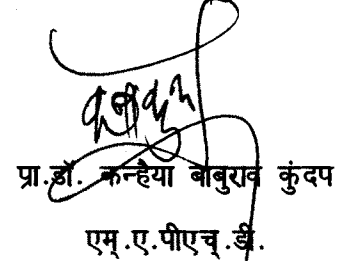 प्रा.डॉ. कन्हैया बाबुराव कुंदप
एम्.ए.पीएच्.डी.